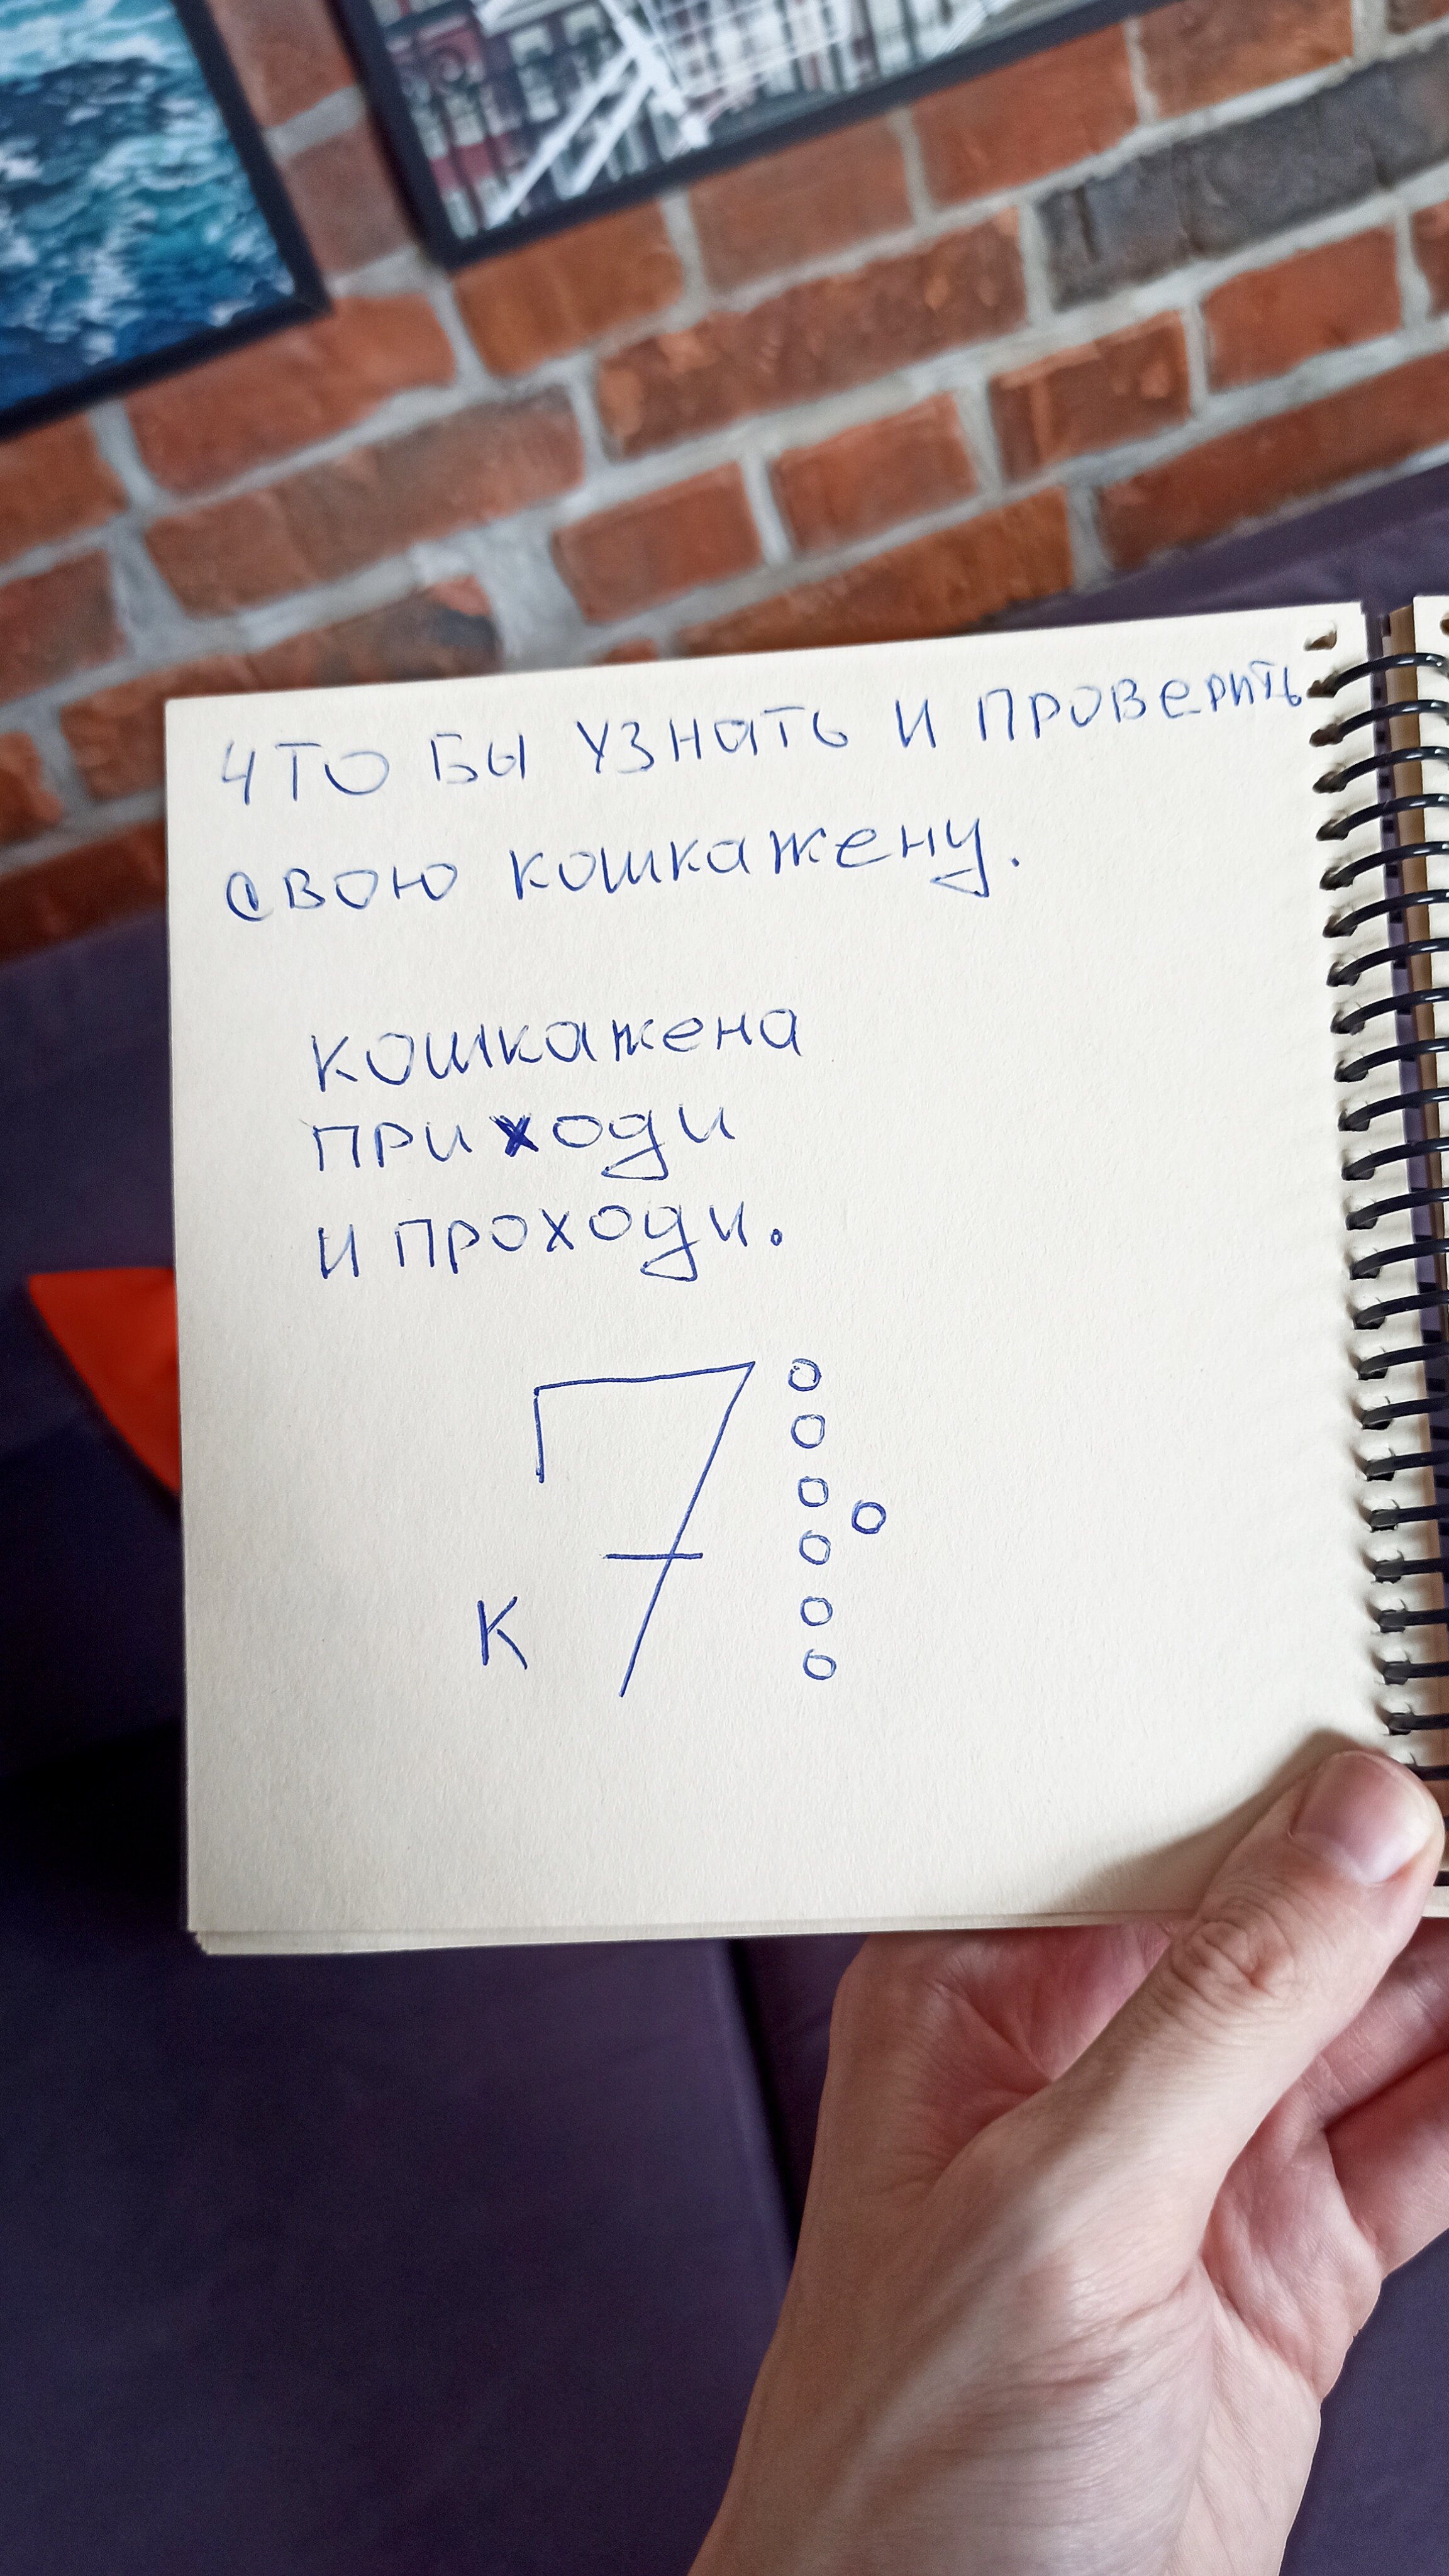 что бы узнать и проверить
свою кошкажену.
кошкажена
приходи
и проходи.
7
К